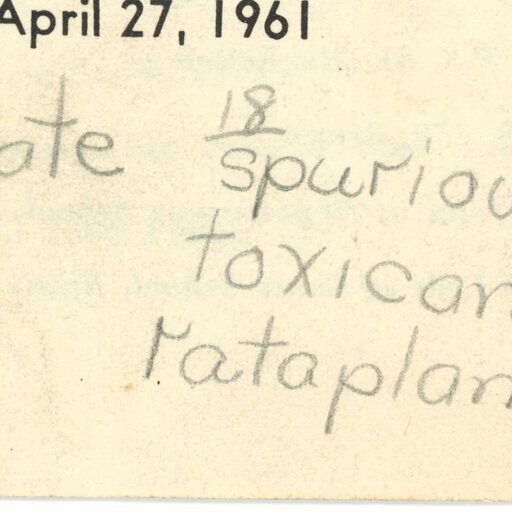 April 27, 1961
ate 18
spuriou
toxican
rataplan